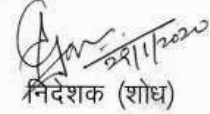 29/1/2020
निदेशक (शोध)